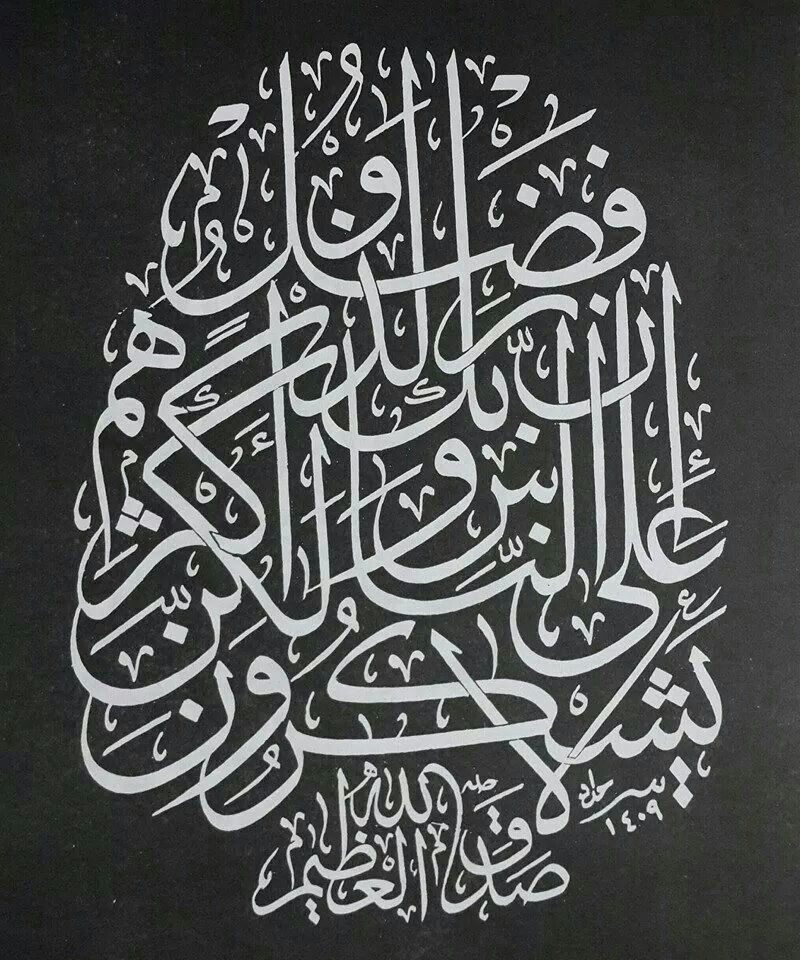 وَإِنَّ رَبَّكَ لَذُو فَضْلٍ عَلَى النَّاسِ وَلَكِنَّ أَكْثَرَهُمْ لَا يَشْكُرُونَ
صدق الله العظيم
١٤٠٩